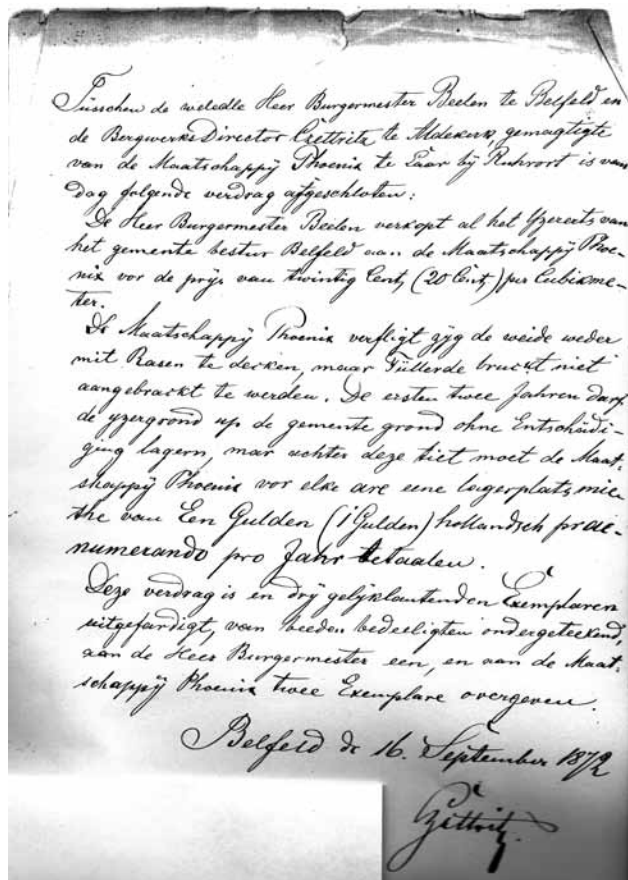 Tüsschen de weledle Heer Burgermester Beelen te Belfeld en
de Bergwerks Director Czettritz te Aldekerk, gemagtigte
van de Maatschappÿ Phoenix te Laar bÿ Ruhrort is van
dag folgende verdrag afgeschloten:
De Heer Burgermester Beelen verkopt al het Yzererts van
het gemente bestur Belfeld aan de Maatschappÿ Phoe-
nix vor de prÿs van twintig Cent, (20 Cent,) per Cubikme-
ter.
De Maatschappÿ Phoenix verfligt zÿg de weide weder
mit Rasen te decken, maar Füllerde bruckt niet
aangebrackt te werden. De ersten twee Jahren darf
de yzergrond up de gemente grond ohne Entschädi-
ging lagern, mar achter deze tiet moet de Maat-
shappÿ Phoenix vor elke are eene lagerplatsmie-
the van Een Gulden (1 Gulden) hollandsch prae-
numerando pro Jahr betaalen.
Deze verdrag is en drÿ gelÿklautenden Exemplaren
uitgefardigt, van beeden bedeeligten ondergeteekend,
aan de Heer Burgermester een, en aan de Maat-
schappÿ Phoenix twee Exemplare overgeven.
Belfeld de 16. September 1872
Czettritz